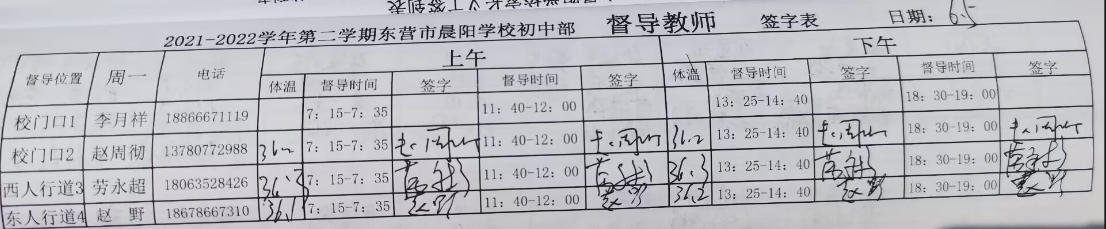 2021-2022学年第二学期东营市晨阳学校初中部 督导教师 签字表 日期：6.5
上午 下午
督导位置 周一 电话 体温 督导时间 签字 督导时间 签字 体温 督导时间 签字 督导时间 签字
校门口1 李月祥 18866671119 7：15-7：35 11：40-12：00 13：25-14：40 18：30-19：00
校门口2 赵周彻 13780772988 36.2 7：15-7：35 11：40-12：00 36.2 13：25-14：40 18：30-19：00
西人行道3 劳永超 18063528426 36.3 7：15-7：35 11：40-12：00 36.3 13：25-14：40 18：30-19：00
东人行道4 赵 野 18678667310 36.1 7：15-7：35 赵野 11：40-12：00 赵野 36.2 13：25-14：40 赵野 18：30-19：00 赵野